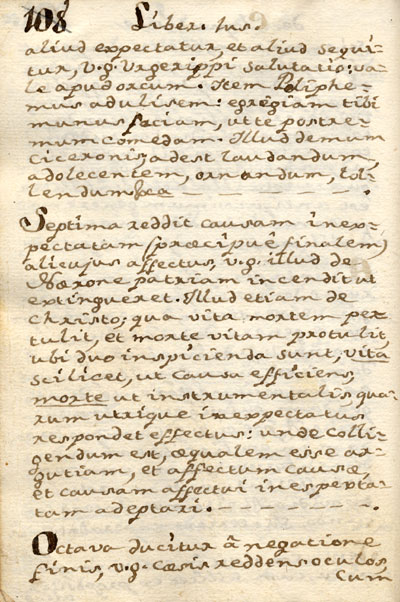 108 Liber. Ius.
aliud expectatur, et aliud sequi-
tur, v.g. Urgerippi salutatio: va-
le apud orcum. Item Poliphe-
mus ad ulisem: egregiam tibi
munus faciam, ut te postre-
mum comedam. Illud demum
ciceronis; adest laudandum,
adolecentem, ornandum, tol-
lendum
Septima reddit causam inex-
pectatam (præcipuê finalem)
alicujus affectus, v.g. illud de
Nærone patriam incendit ut
extingueret. Illud etiam de
christo; qua vita mortem per
tulit, et morte vitam protulit,
ubi duo inspicienda sunt, vita
scilicet, ut causa efficiens,
morte ut instrumentalis qua-
rum utrique inexpectatus
respondet effectus: unde colli-
gendum est, æqualem esse ar-
gutiam, et affectum causæ
et causam affectui inesperta-
tam adeptari.
Octava ducitur â negatione
finis, v.g. cæsis reddens oculos,
Cum